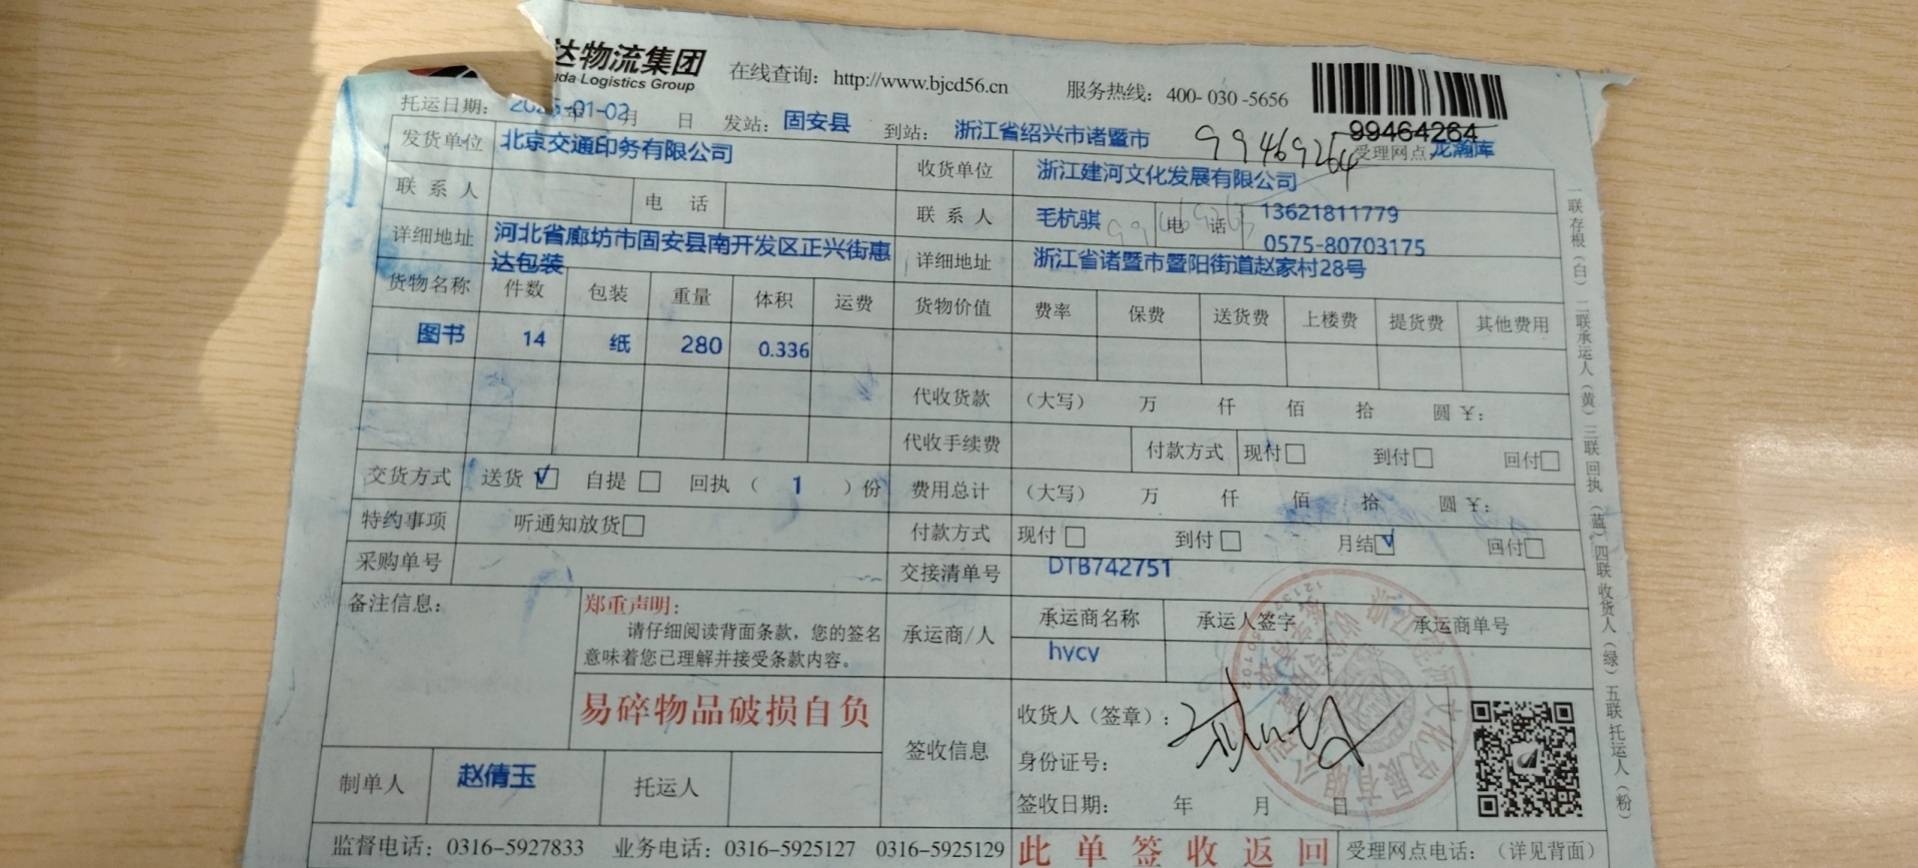 达物流集团
da Logistics Group
在线查询：http://www.bjcd56.cn
服务热线：400-030-5656
99464264
托运日期：
01-02
年 月 日
发站：固安县
到站：浙江省绍兴市诸暨市
99469264
受理网点：龙瀚库
发货单位 北京交通印务有限公司
收货单位 浙江建河文化发展有限公司
联系人 电话
联系人 毛杭骐 电话 13621811779
0575-80703175
详细地址 河北省廊坊市固安县南开发区正兴街惠
达包装
详细地址 浙江省诸暨市暨阳街道赵家村28号
货物名称 件数 包装 重量 体积 运费 货物价值 费率 保费 送货费 上楼费 提货费 其他费用
图书 14 纸 280 0.336
代收货款 （大写） 万 仟 佰 拾 圆 ¥：
代收手续费 付款方式 现付□ 到付□ 回付□
交货方式 送货☑ 自提□ 回执（ 1 ）份 费用总计 （大写） 万 仟 佰 拾 圆 ¥：
特约事项 听通知放货□ 付款方式 现付□ 到付□ 月结☑ 回付□
采购单号 交接清单号 DTB742751
备注信息：
郑重声明：
请仔细阅读背面条款，您的签名
意味着您已理解并接受条款内容。
易碎物品破损自负
承运商/人 承运商名称 承运人签字 承运商单号
hvcy
签收信息
收货人（签章）：
身份证号：
签收日期： 年 月 日
制单人 赵倩玉 托运人
监督电话：0316-5927833 业务电话：0316-5925127 0316-5925129 此单签收返回 受理网点电话：（详见背面）
一联存根（白） 二联承运人（黄） 三联回执（蓝） 四联收货人（绿） 五联托运人（粉）